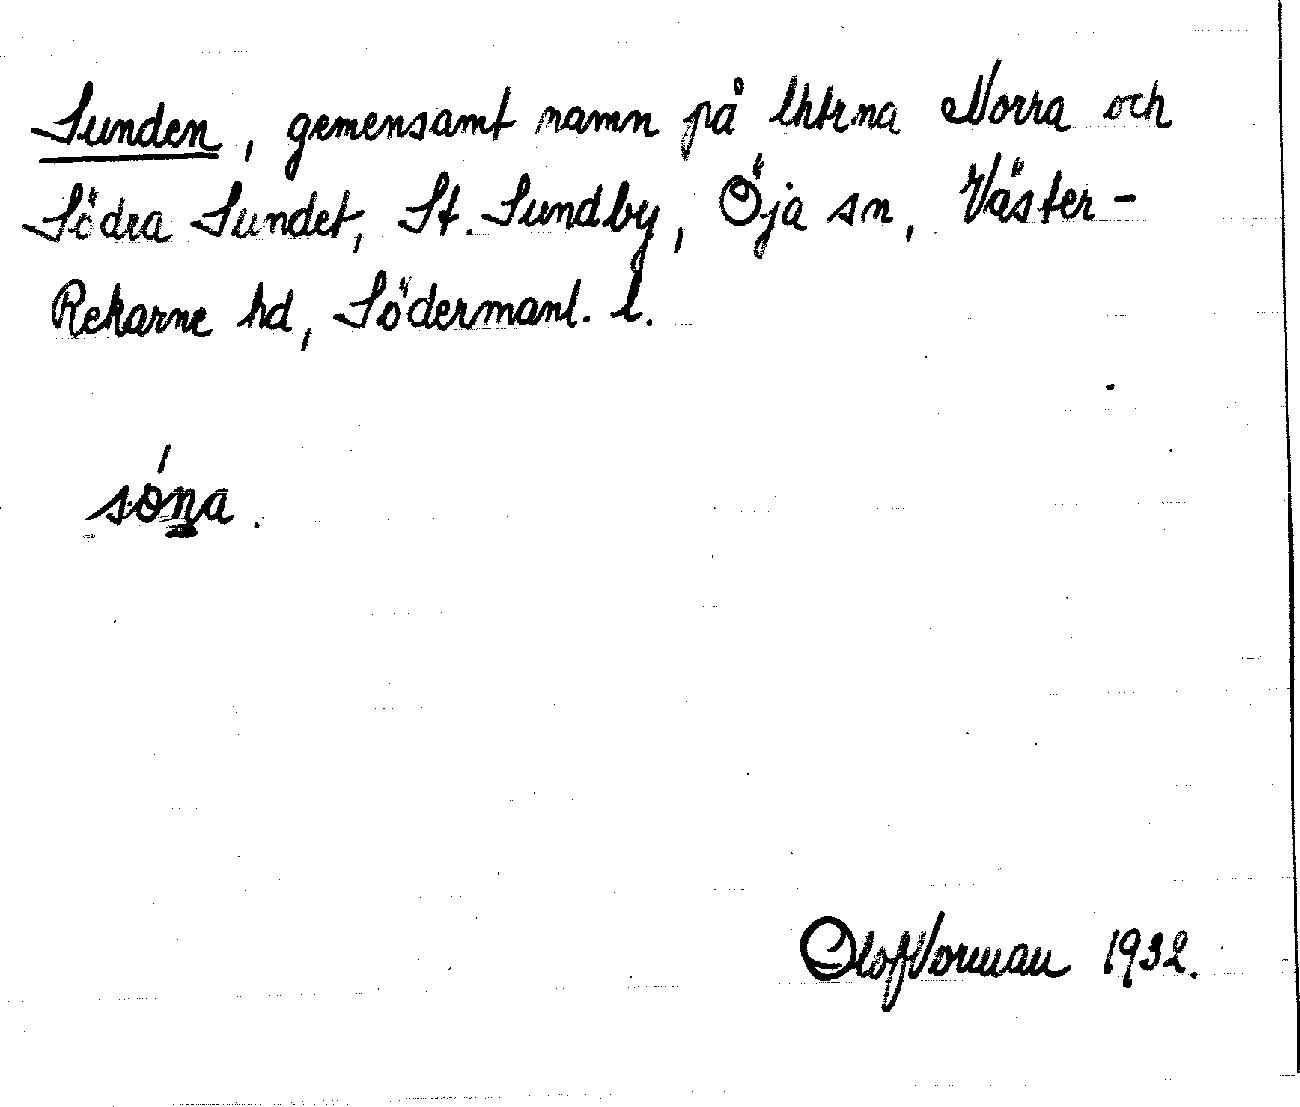 Sunden, gemensamt namn på lhtrna Norra och
Södra Sundet, St. Sundby, Öja sn, Väster-
Rekarne hd, Södermanl. l.
sóna.
Olof Norman 1932.